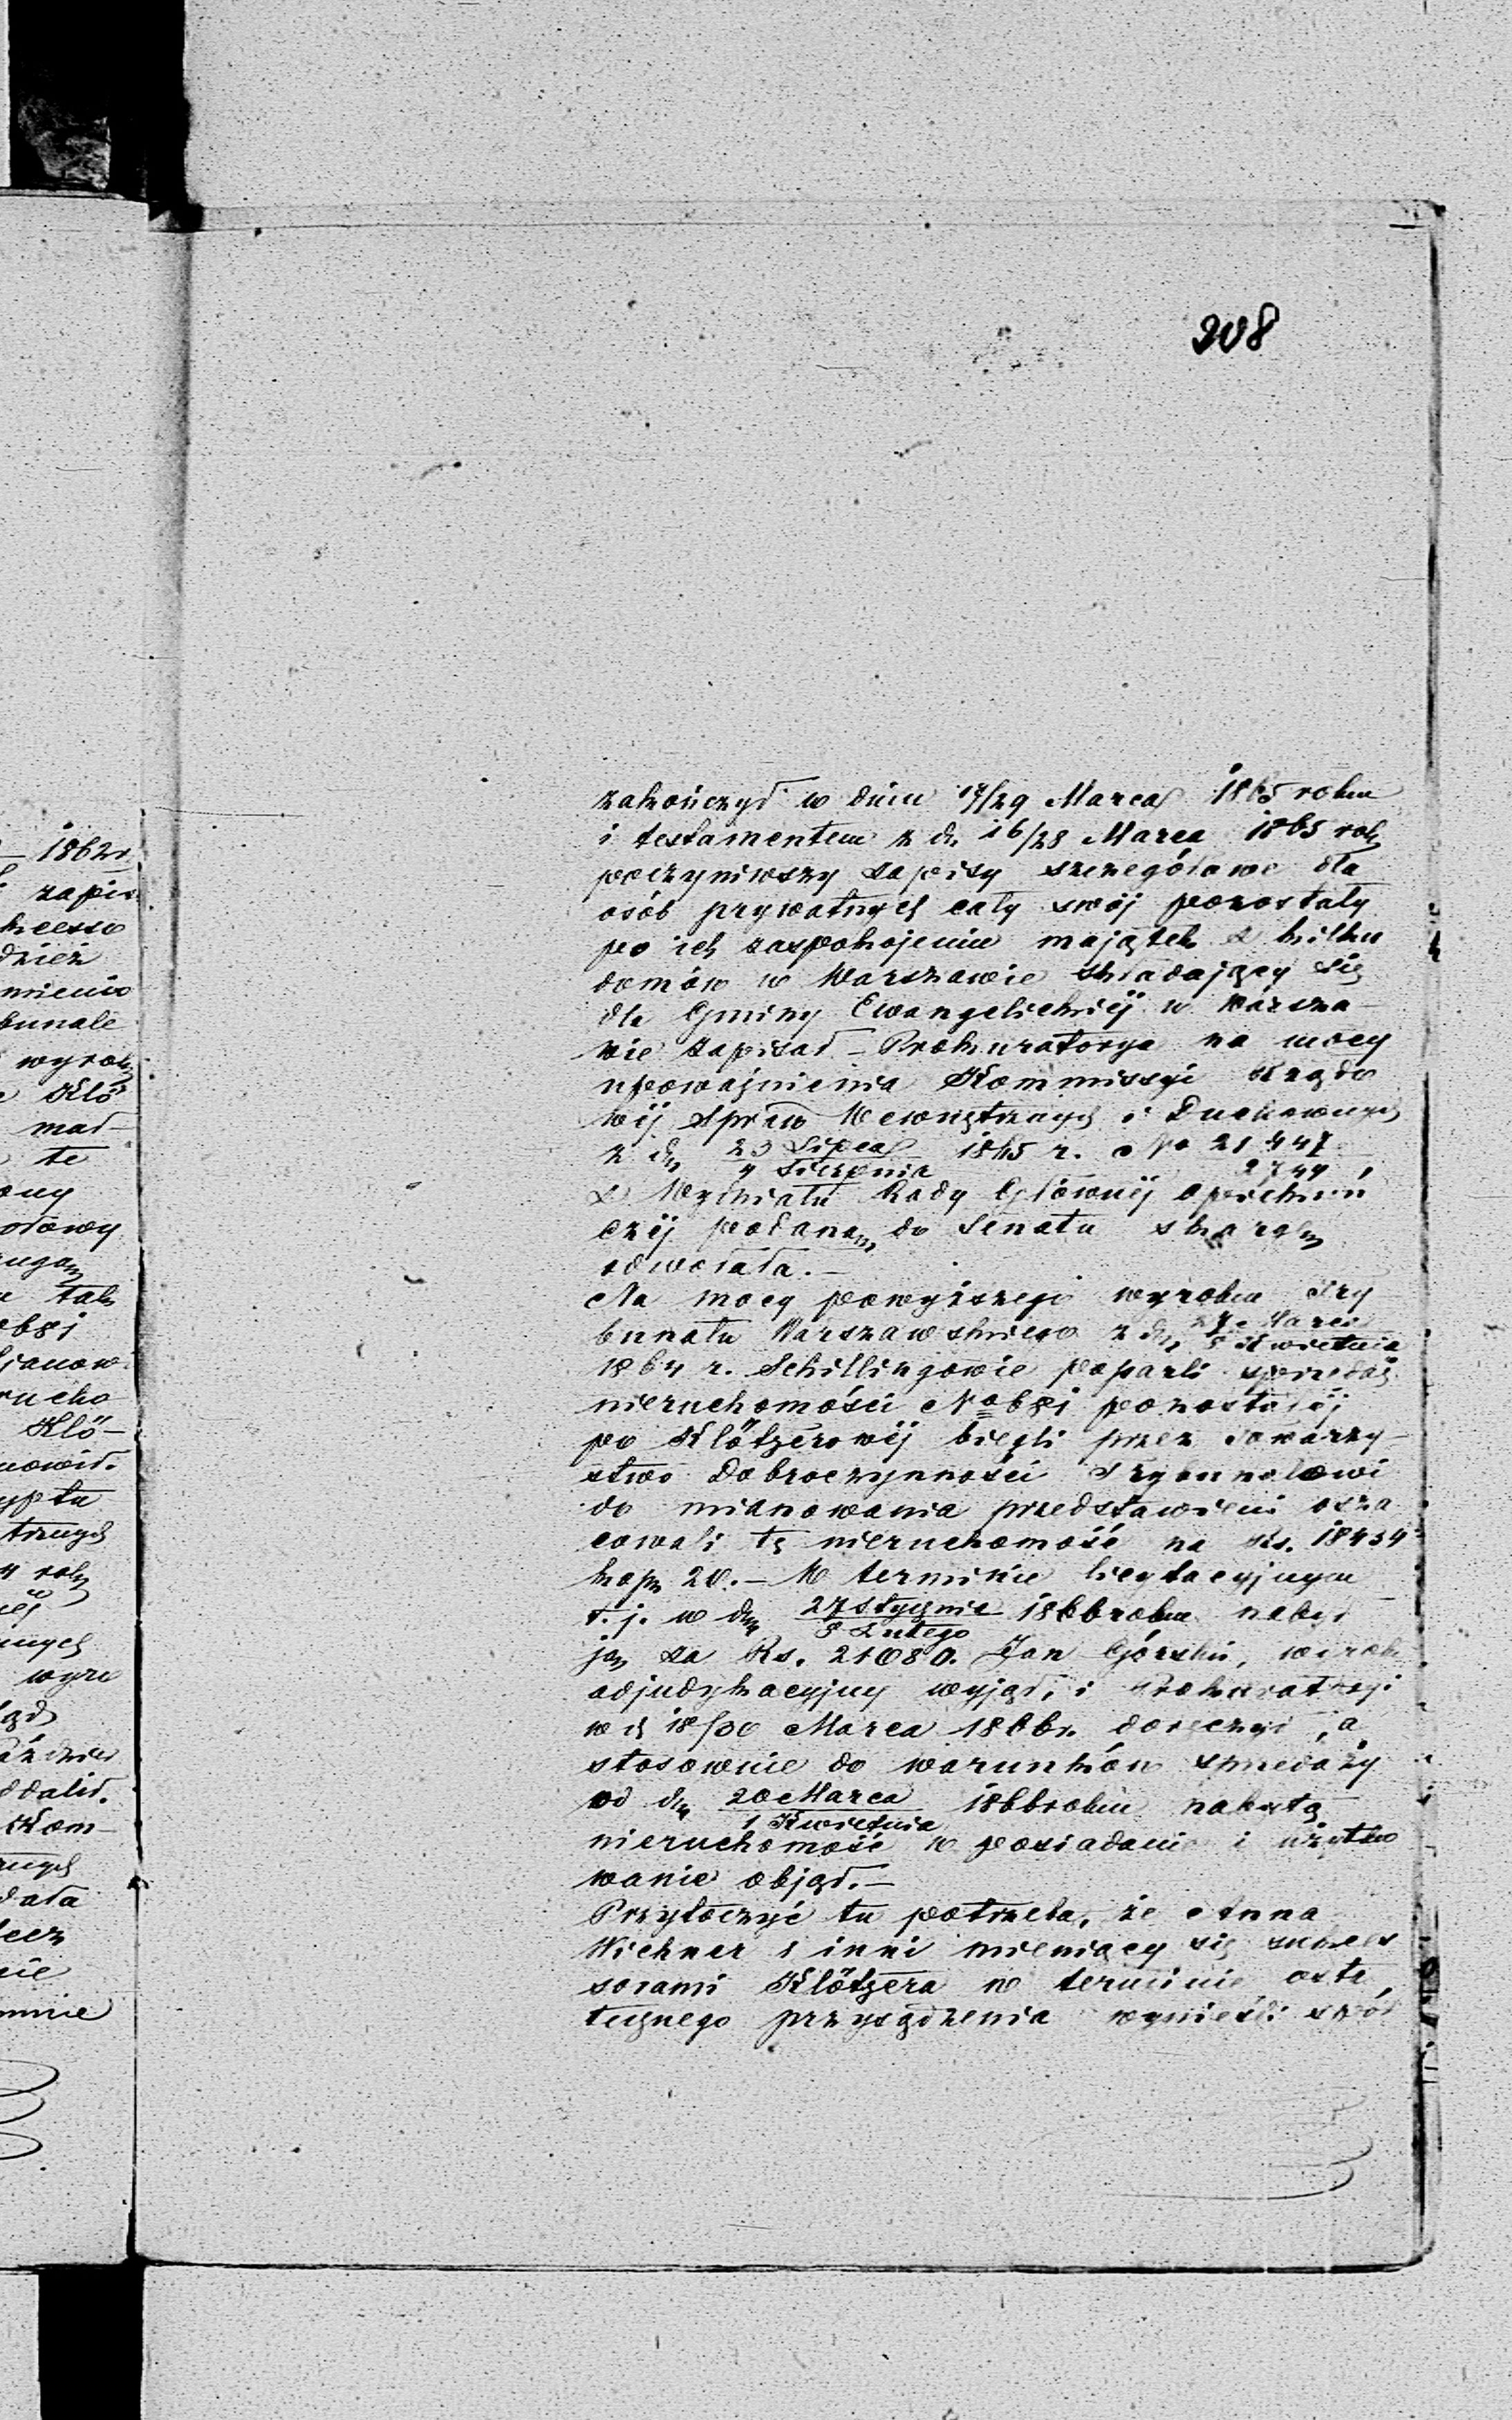 208
zakończył w dniu 17/29 Marca 1865 roku
i testamentem z dn. 16/28 Marca 1865 roku
poczyniwszy zapisy szczegółowe dla
osób prywatnych cały swój pozostały
po ich zaspokojeniu majątek z kilku
domów w Warszawie składający się
dla Gminy Ewangelickiéj w Warsza-
wie zapisał – Prokuratorya na mocy
upoważnienia Kommissyi Rządo
wéj Spraw Wewnętrznych i Duchownych
z dn 23 Lipca / 4 Sierpnia 1865 r. No 21447 / 2744,
z Wydziału Rady Głównéj Opiekuń
czéj podaną do Senatu skargę
odwołała. –
Na mocy powyższego wyroku Try
bunału Warszawskiego z dn, 27 Marca / 8 Kwietnia
1864 r. Schillingowie poparli sprzedaż
nieruchomości No 681 pozostałéj
po Klötzerowéj biegli przez Towarzy-
stwo Dobroczynności Trybunałowi
do mianowania przedstawieni osza
cowali tę nieruchomość na Rs. 18434
kop. 20. – W terminie licytacyjnym
t. j. w dn, 27 Stycznia / 8 Lutego 1866 roku nabył
ją za Rs. 21080. Jan Górski, wyrok
adjudykacyjny wyjął, i Prokuratoryi
w d 18/30 Marca 1866 r. doręczył, a
stosownie do warunków sprzedaży
od dn 20 Marca / 1 Kwietnia 1866 roku nabytą
nieruchomość w posiadanie i użytko
wanie objął. –
Przytoczyć tu potrzeba, że Anna
Wichner i inni mieniący się sukces
sorami Klötzera w terminie osta
tecznego przysądzenia wynieśli spór
1862 r.
zapis
wyrok
Klö
te
tak
Klö-
wyro
Kom-